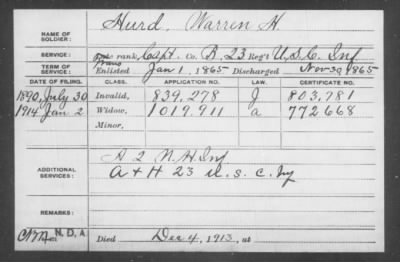 NAME OF SOLDIER: Hurd, Warren H.
SERVICE: rank, Capt. Co. B, 23 Reg't U.S.C. Inf
TERM OF SERVICE: Enlisted Jan 1, 1865 Discharged Nov 30, 1865
DATE OF FILING. CLASS. APPLICATION NO. LAW. CERTIFICATE NO.
1890, July 30 Invalid, 839,278 J 803,781
1914 Jan 2 Widow, 1019,911 a 772668
Minor,
ADDITIONAL SERVICES: A 2 N.H. Inf
A + H 23 U.S.C. Inf
REMARKS:
N.D.A. Died Dec 4, 1913, at